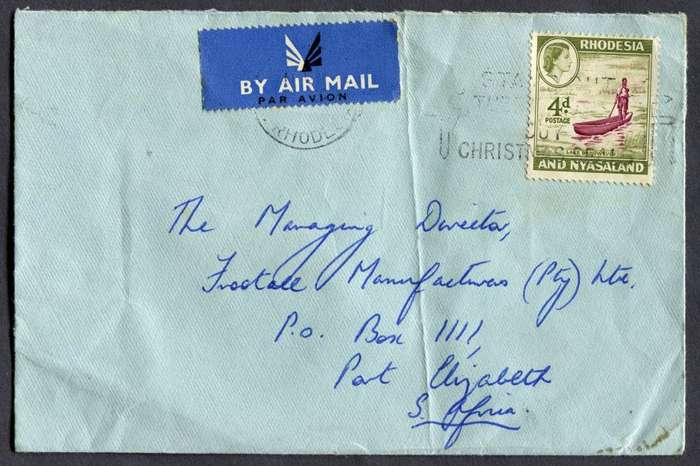 BY AIR MAIL
PAR AVION
RHODESIA
4d.
POSTAGE
AND NYASALAND
CHRISTMAS SEAL
The Managing Director,
Manufacturers (Pty) Ltd.
P.O. Box 1111,
Port Elizabeth
S. Africa.